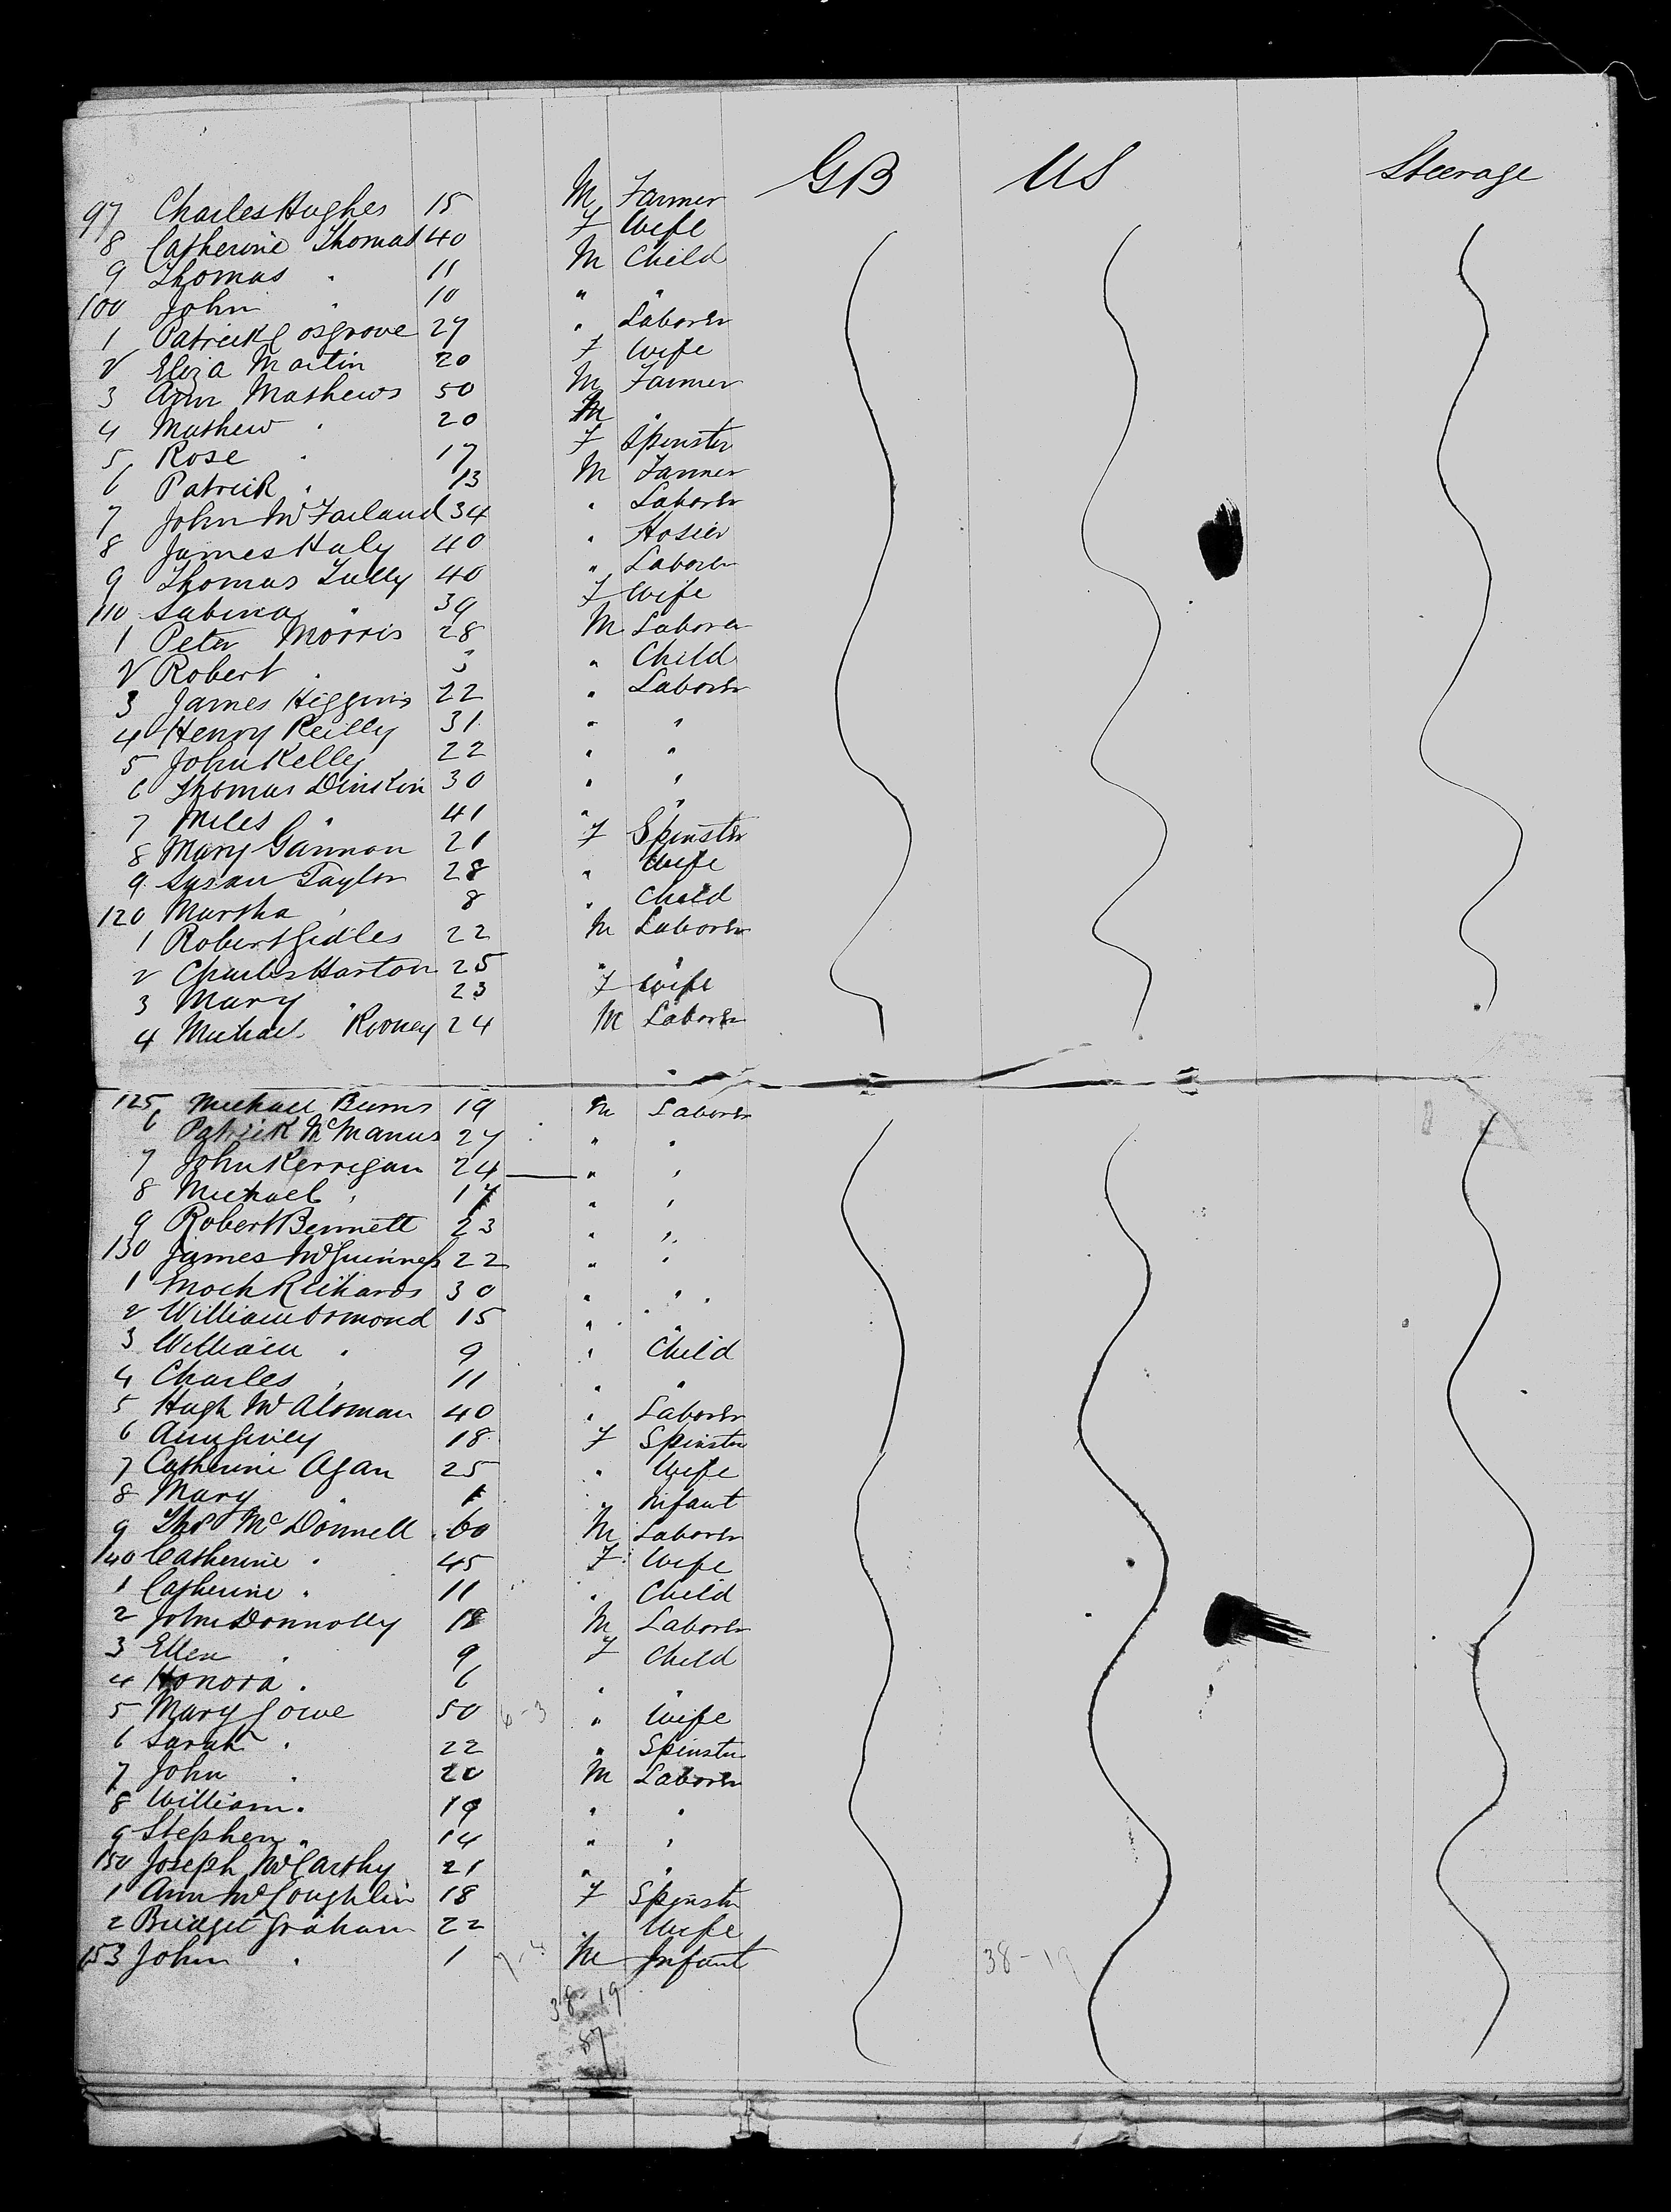 GB US Steerage
97 Charles Hughes 15 M Farmer
8 Catherine Thomas 40 F Wife
9 Thomas " 11 M Child
100 John " 10 " "
1 Patrick Cosgrove 27 " Laborer
2 Eliza Martin 20 F Wife
3 Ann Mathews 50 M Farmer
4 Mathew " 20 M "
5 Rose " 17 F Spinster
6 Patrick " 13 M Farmer
7 John McFarland 34 " Laborer
8 James Haly 40 " Hosier
9 Thomas Tully 40 " Laborer
110 Sabina " 39 F Wife
1 Peter Morris 28 M Laborer
2 Robert " 3 " Child
3 James Higgins 22 " Laborer
4 Henry Reilly 31 " "
5 John Kelly 22 " "
6 Thomas Dinskin 30 " "
7 Miles " 41 " "
8 Mary Gannon 21 F Spinster
9 Susan Taylor 28 " Wife
120 Martha " 8 " Child
1 Robert Gidles 22 M Laborer
2 Charles Harton 25 " "
3 Mary " 23 F Wife
4 Michael Rooney 24 M Laborer
125 Michael Burns 19 M Laborer
6 Patrick McManus 27 " "
7 John Kerrigan 24 " "
8 Michael " 17 " "
9 Robert Bennett 23 " "
130 James McGuinness 22 " "
1 Enoch Richards 30 " "
2 William Ormond 15 " "
3 William " 9 " Child
4 Charles " 11 " "
5 Hugh McAloman 40 " Laborer
6 Ann 18 F Spinster
7 Catherine Agan 25 " Wife
8 Mary " 1 " Infant
9 Thos McDonnell 60 M Laborer
140 Catherine " 45 F Wife
1 Catherine " 11 " Child
2 John Donnolly 18 M Laborer
3 Ellen " 9 F Child
4 Honora " 6 " "
5 Mary Gowe 50 6-3 " Wife
6 Sarah " 22 " Spinster
7 John " 20 M Laborer
8 William " 19 " "
9 Stephen " 14 " "
150 Joseph McCarthy 21 " "
1 Ann McLoughlin 18 F Spinster
2 Bridget Graham 22 " Wife
153 John " 1 M Infant 38-19
38-19
87